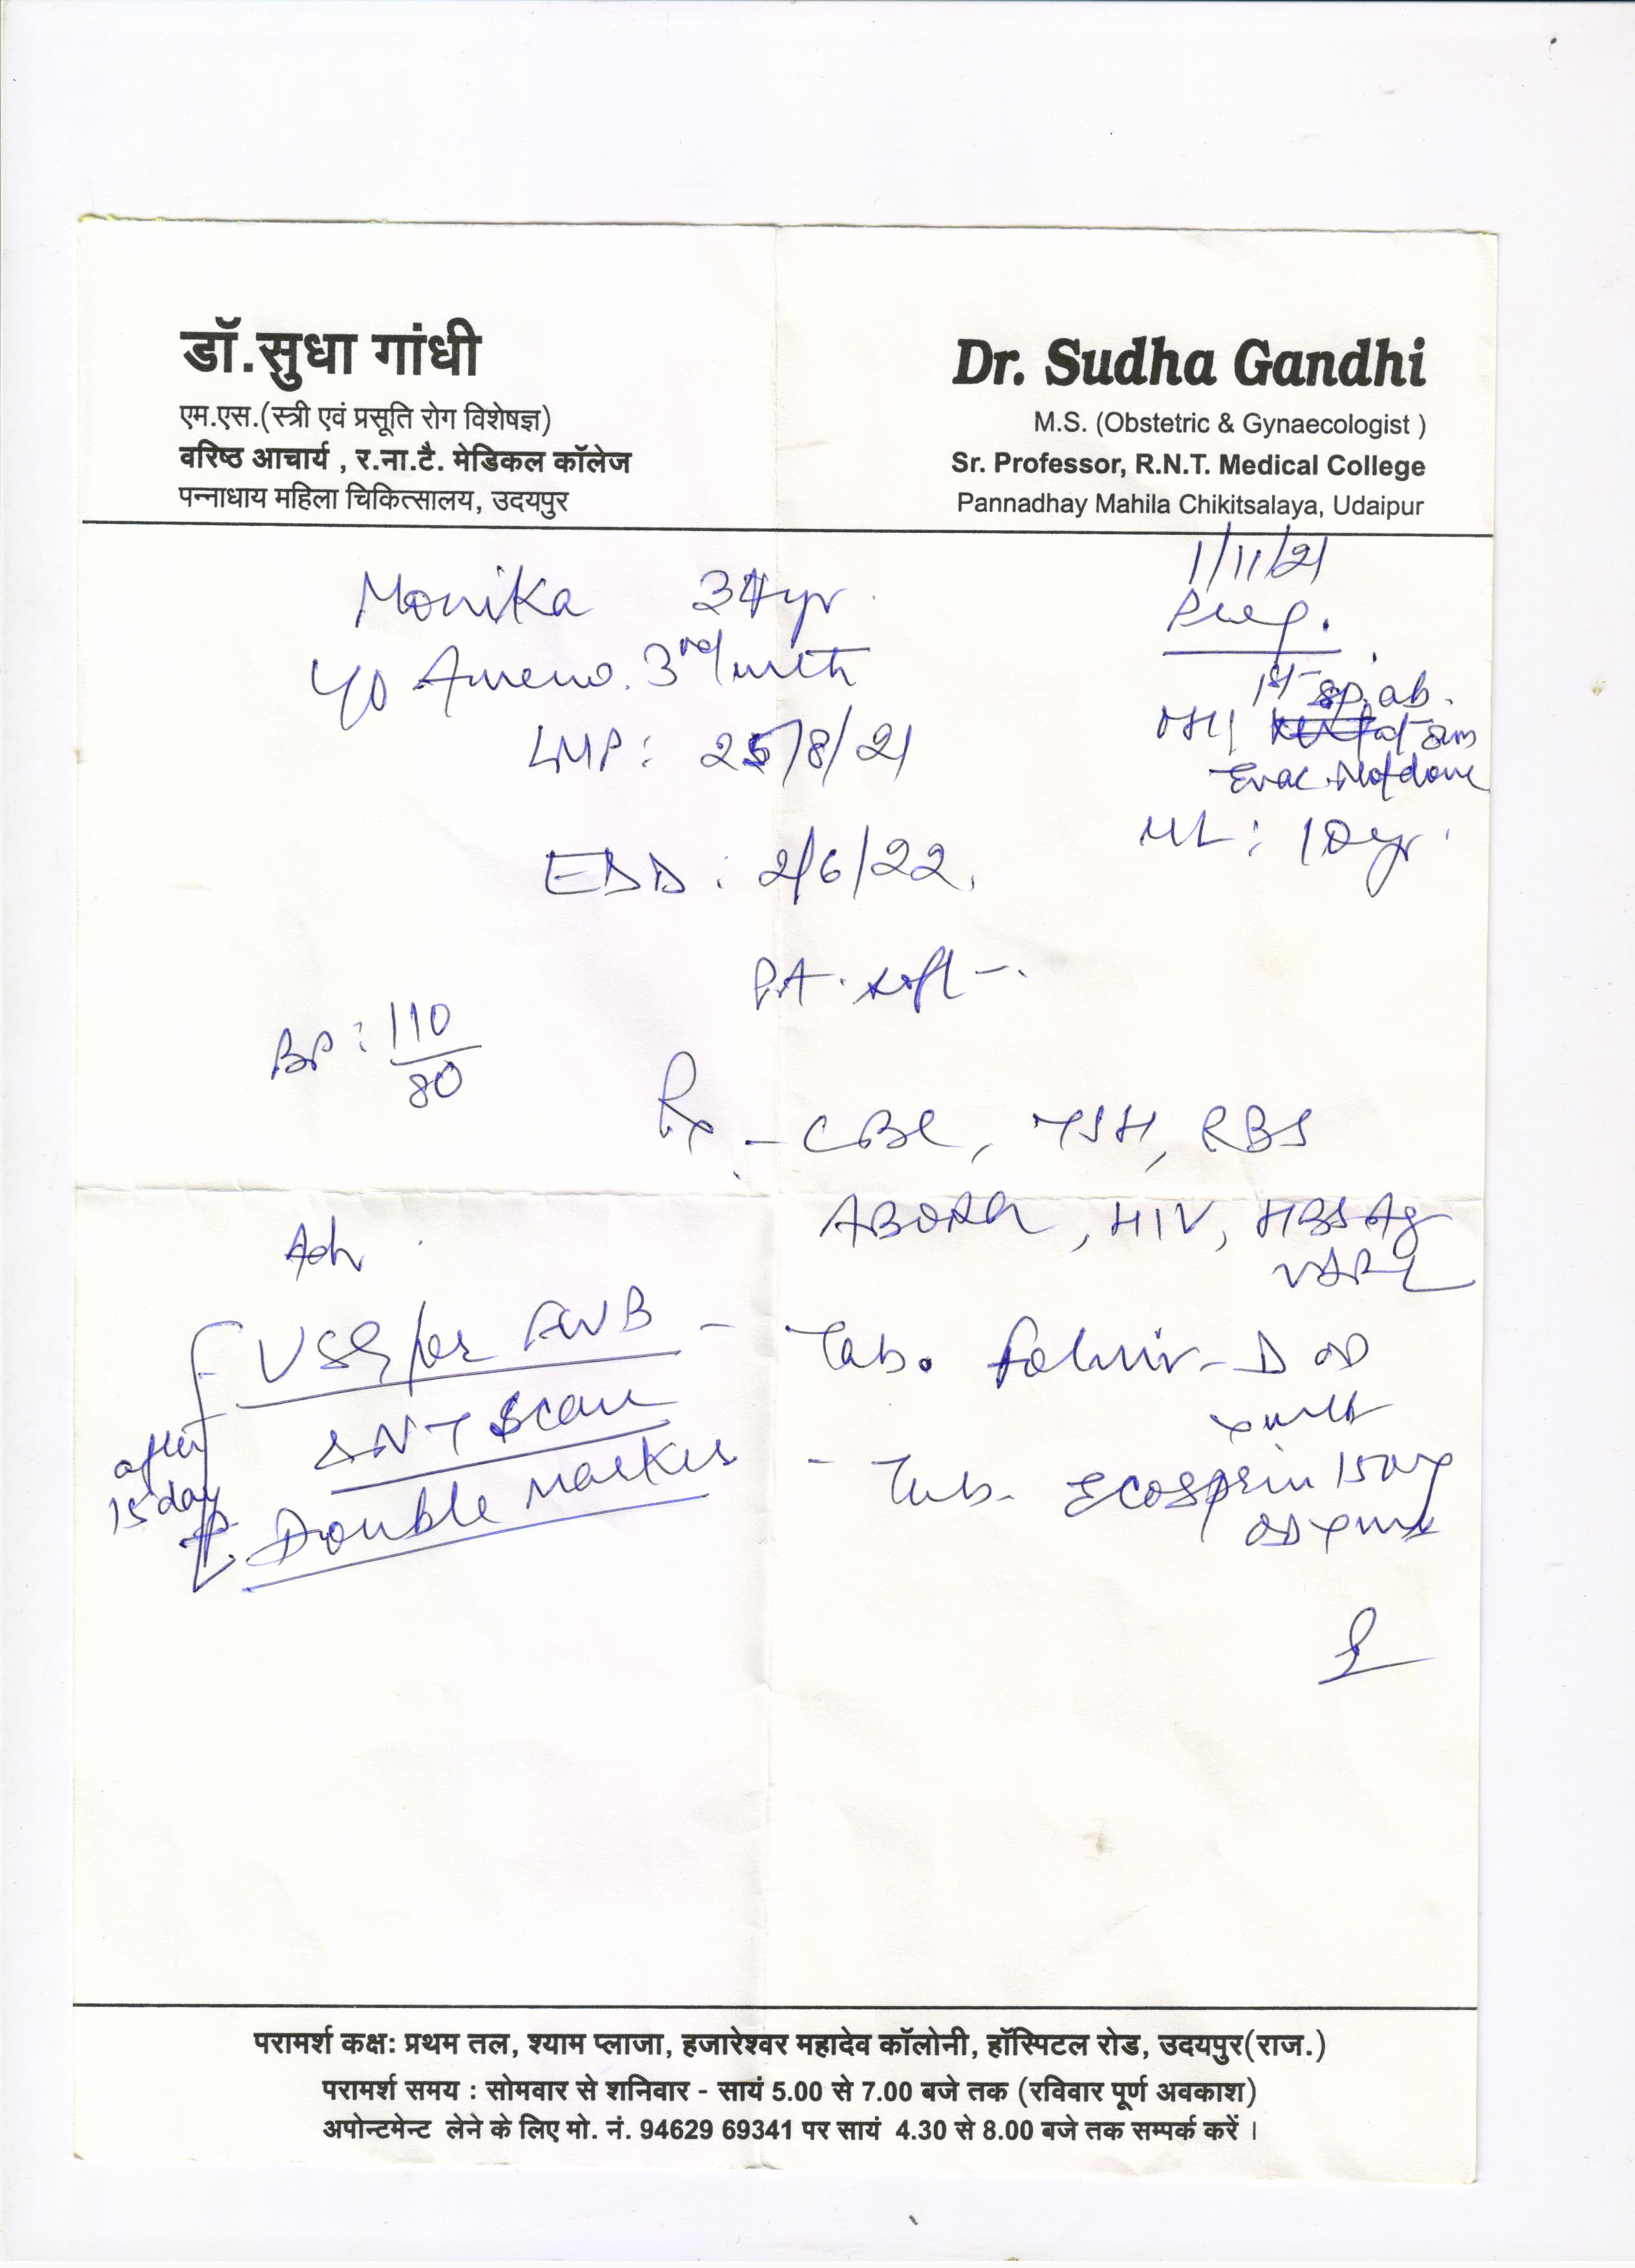 डॉ.सुधा गांधी
एम.एस.(स्त्री एवं प्रसूति रोग विशेषज्ञ)
वरिष्ठ आचार्य , र.ना.टै. मेडिकल कॉलेज
पन्नाधाय महिला चिकित्सालय, उदयपुर
Dr. Sudha Gandhi
M.S. (Obstetric & Gynaecologist )
Sr. Professor, R.N.T. Medical College
Pannadhay Mahila Chikitsalaya, Udaipur
1/11/21
Preg.
Monika 34yr.
Ameno. 3rd mth
LMP: 25/8/21
EDD: 2/6/22.
1st sp. ab.
OH
Evac. Not done
ML: 10yr.
PA. soft
BP: 110/80
Rx - CBC, TSH, RBS
ABORh, HIV, HBSAg
VDRL
Adv
after 15 day
USG for FWB
& NT Scan
Double Marker
- Tab. -D OD
x mth
- Tab. Ecosprin 150mg
OD x mth
परामर्श कक्ष: प्रथम तल, श्याम प्लाजा, हजारेश्वर महादेव कॉलोनी, हॉस्पिटल रोड, उदयपुर(राज.)
परामर्श समय : सोमवार से शनिवार - सायं 5.00 से 7.00 बजे तक (रविवार पूर्ण अवकाश)
अपोन्टमेन्ट लेने के लिए मो. नं. 94629 69341 पर सायं 4.30 से 8.00 बजे तक सम्पर्क करें ।